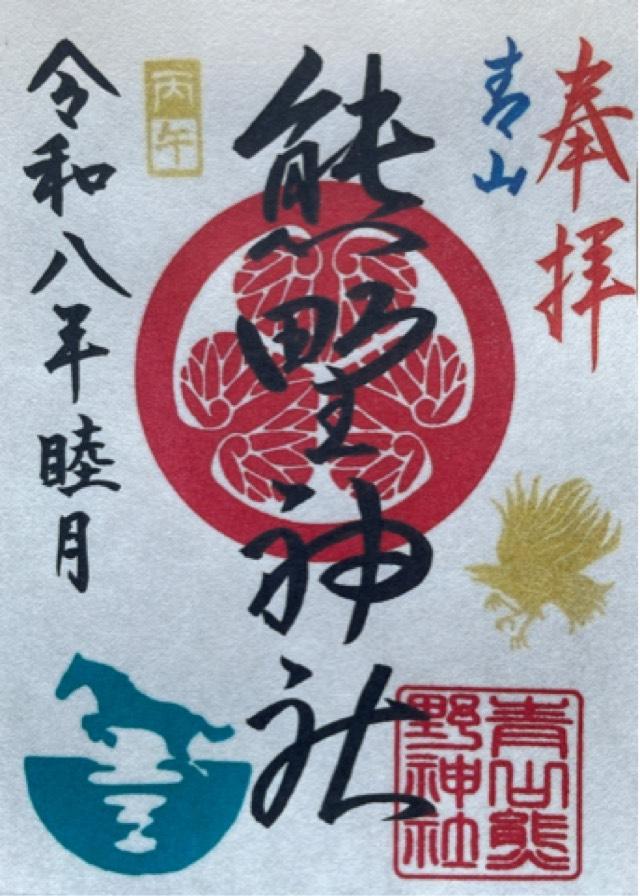 奉拝
青山
熊野神社
丙午
令和八年睦月
青山熊
野神社